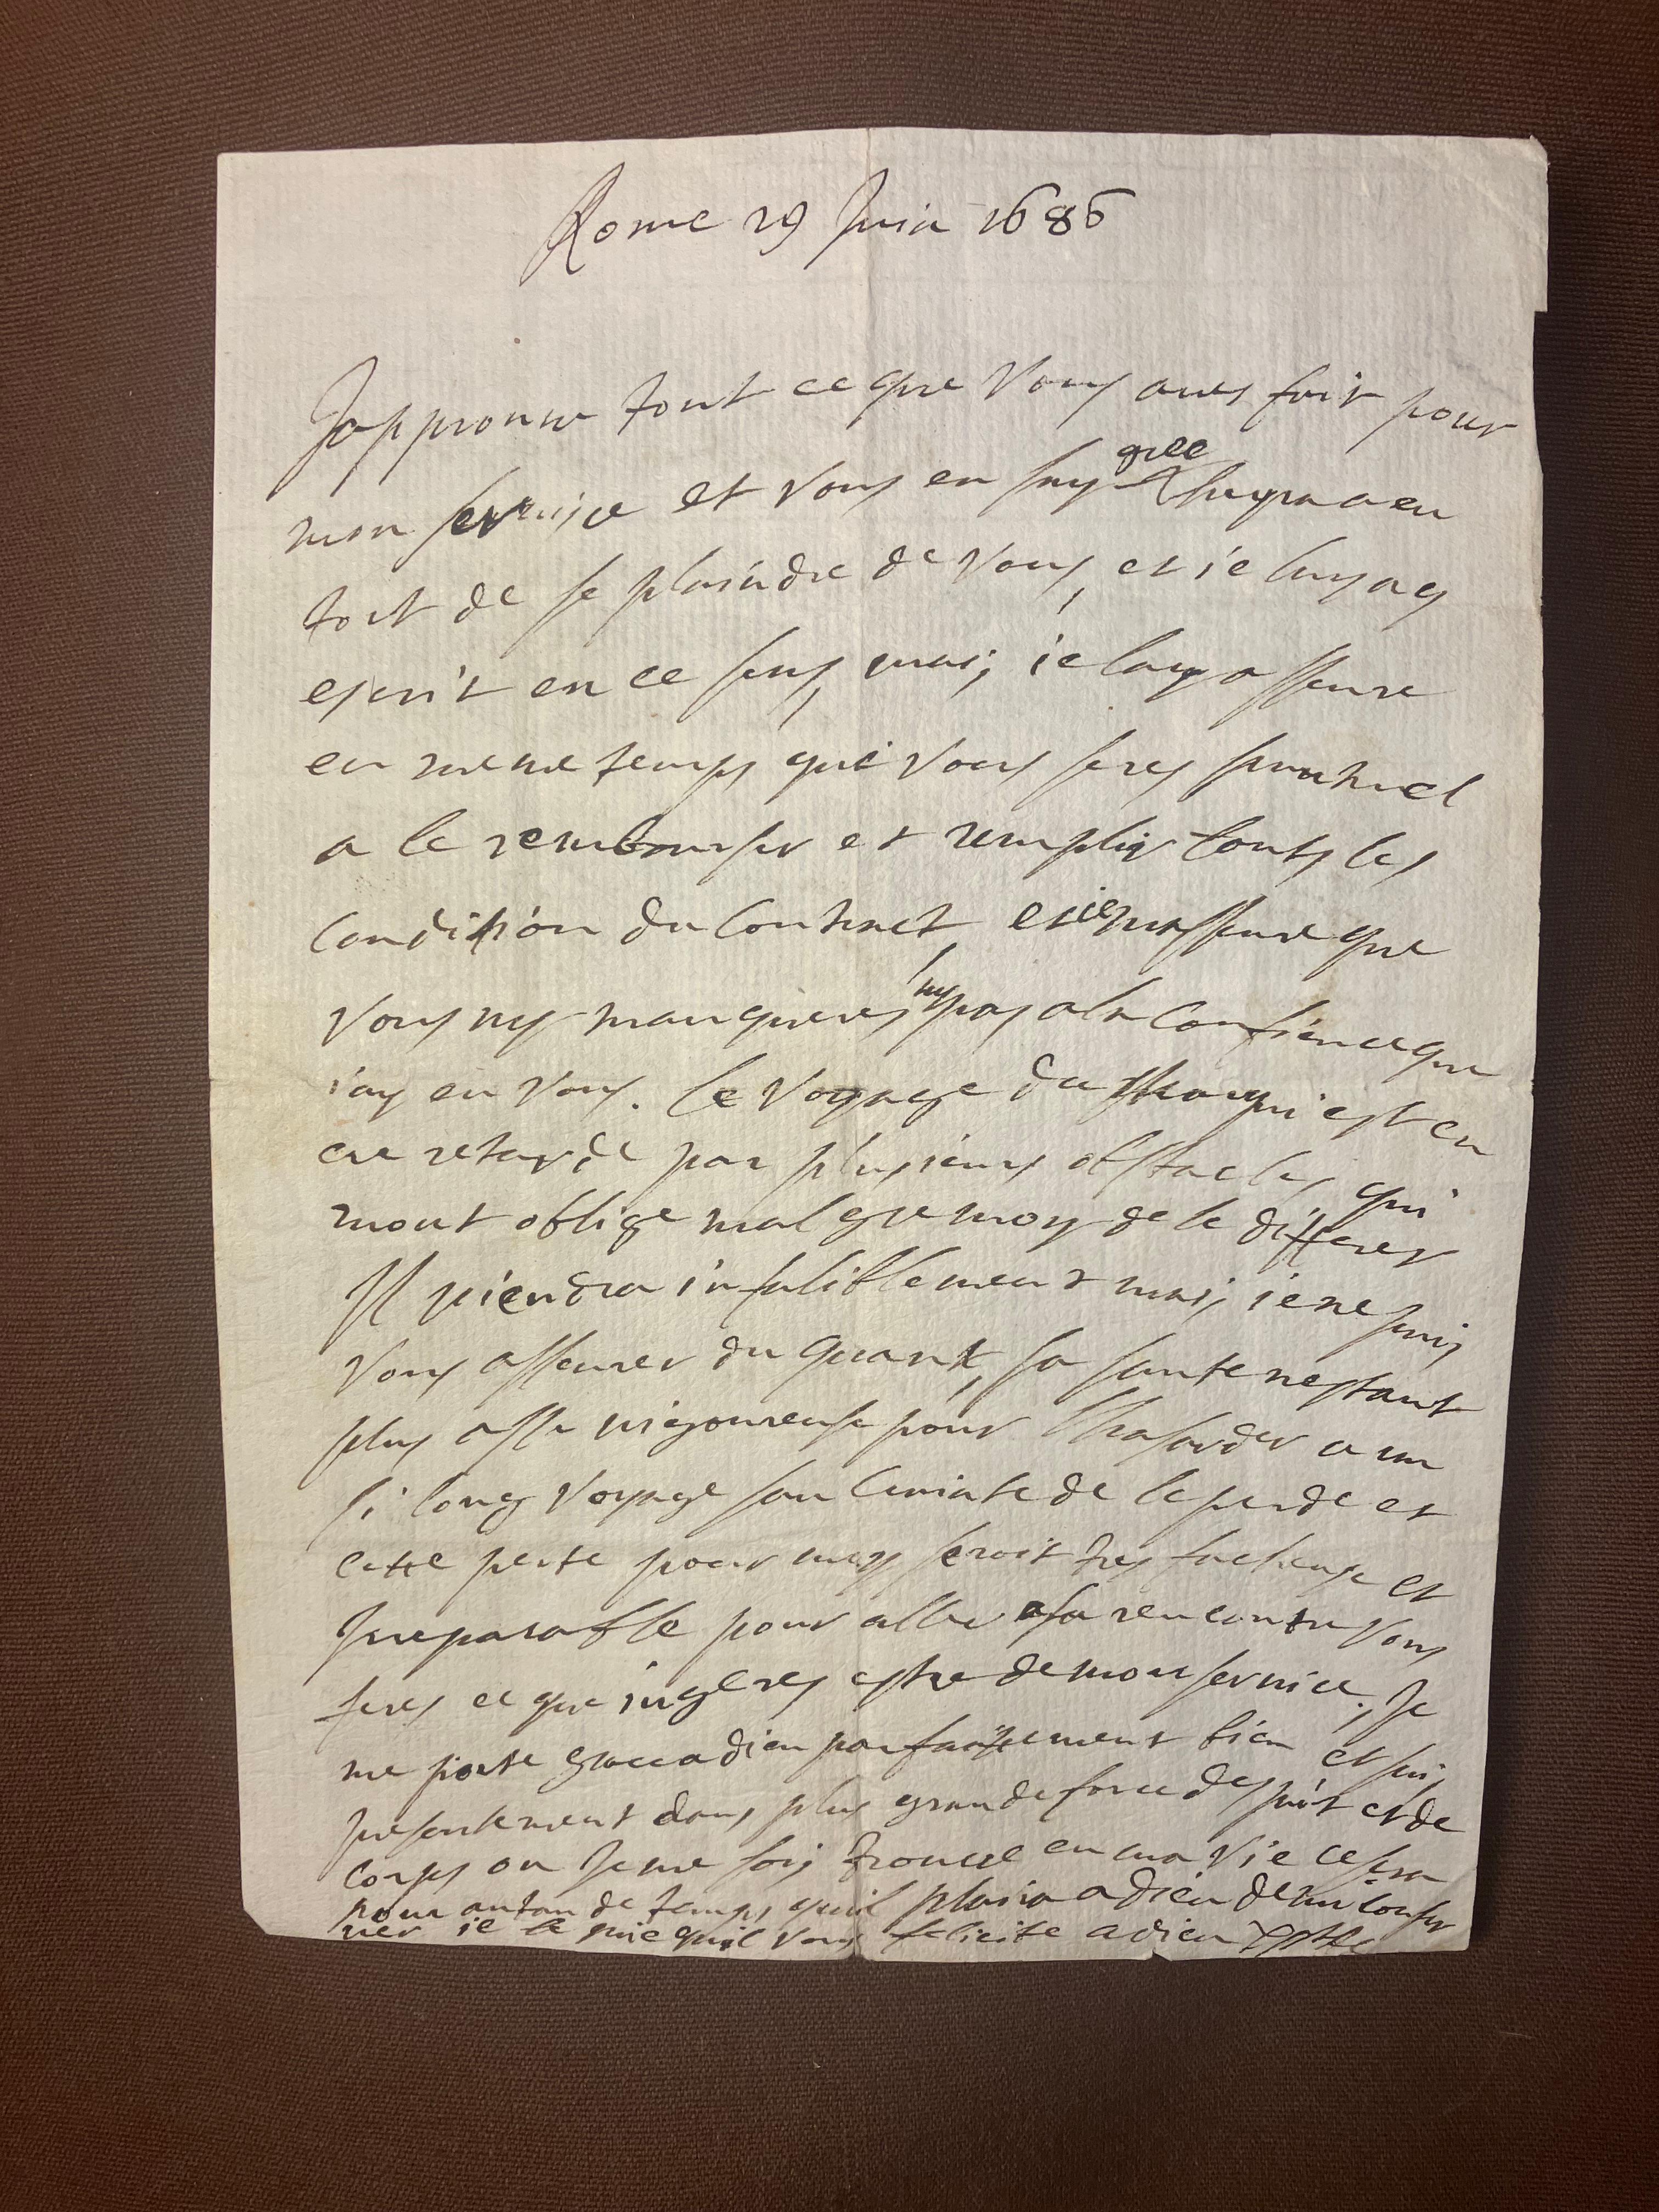 Rome 29 Juin 1686
Japprouue tout ce que Vous aues fait pour
mon seruice et Vous en suy gree
tort de se plaindre de Vous, et ie luy ay
escrit en ce sens, mais ie luy asseure
en meme temps que Vous seres ponctuel
a le rembourser et remplir touts les
Condition du Contract, et ie masseure que
Vous ny manqueres, ny pas a la Confience que
iay en Vous. le Voyage du est en
cre retarde par plusieurs obstacles qui
mont oblige malgre moy de le differer
Il viendra infaliblement mais ie ne puis
Vous asseurer du quant, sa sante nestant
plus asse vigoureuse pour lhasarder a un
si long Voyage san de le perde et
cette perte pour moy seroit tres facheuse et
Ireparable pour aller a sa rencontre Vous
feres ce que iugeres estre de mon seruice. Je
me porte grace a dieu parfaitement bien et suis
presentement dans plus grande force desprit et de
corps ou Je me sois trouuee en ma Vie ce sera
pour autan de temps quil plaira a dieu de my conser
uer ie le prie quil Vous felicite adieu